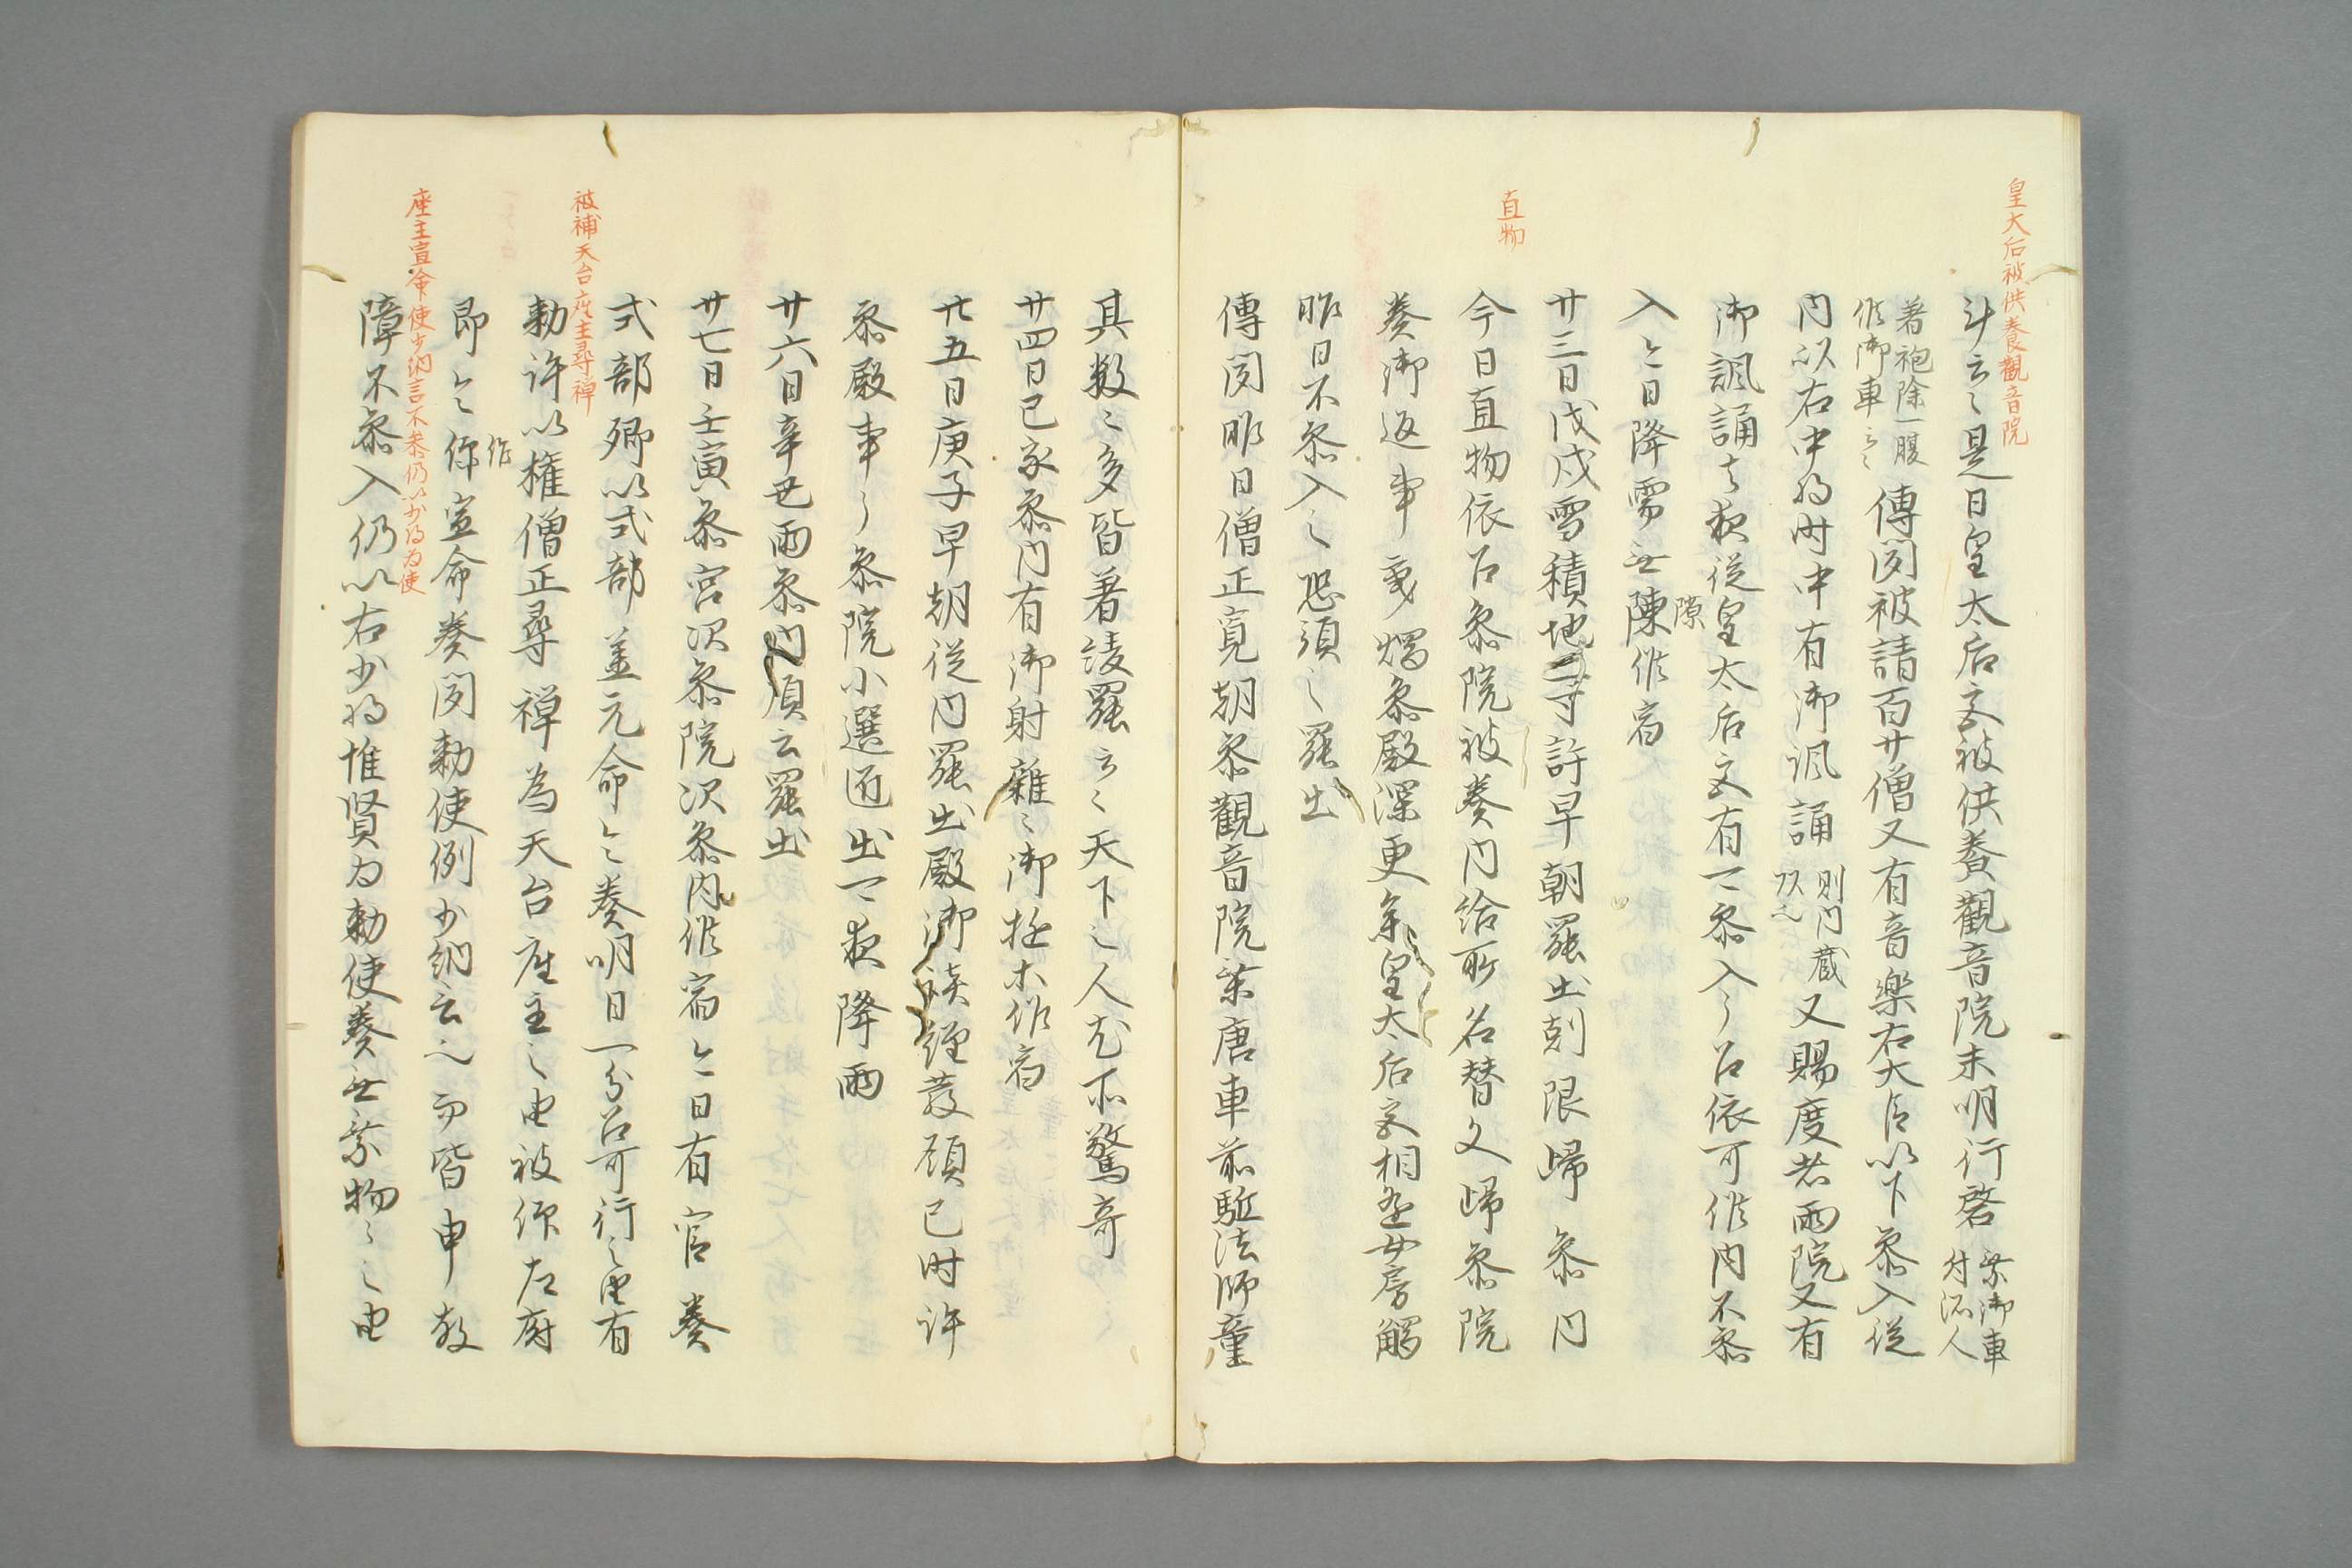 皇太后被供養観音院
斗云々是日皇太后宮被供養観音院未明行啓乗御車付添人
着袍除一腹候御車云々傳聞被請百廿僧又有音楽右大臣以下参入従
内以右中将時中有御諷誦則内蔵又賜度者両院又有
御諷誦云々夜従皇太后宮有可参入之召依可候内不参
入今日降雪無陳候宿
隙
直物
廿三日戊戌雪積地二寸許早朝罷出剋限帰参内
今日直物依召参院被奏内給所名替文帰参院
奏御返事戌終参殿深更参皇太后宮相逢女房觸
昨日不参入之恐須之罷出
傳聞昨日僧正寛朝参観音院乗唐車前駈法師童
其数々多皆著綾羅云々天下之人尤所驚奇
廿四日己亥参内有御射雜々御遊亦候宿
廿五日庚子早朝従内罷出殿御読経發願巳時許
参殿事了参院小選退出今夜降雨
廿六日辛丑雨参内須云罷出
廿七日壬寅参宮次参院次参内候宿今日有官奏
被補天台座主尋禅
式部卿以式部盖元命令奏明日一分召可行之由有
勅許以権僧正尋禅為天台座主之由被仰左府
即令仰宣命奏聞勅使例少納言也而皆申故
作
座主宣命使少納言不参仍以少将為使
障不参入仍以右少将惟賢為勅使奏無禄物々之由